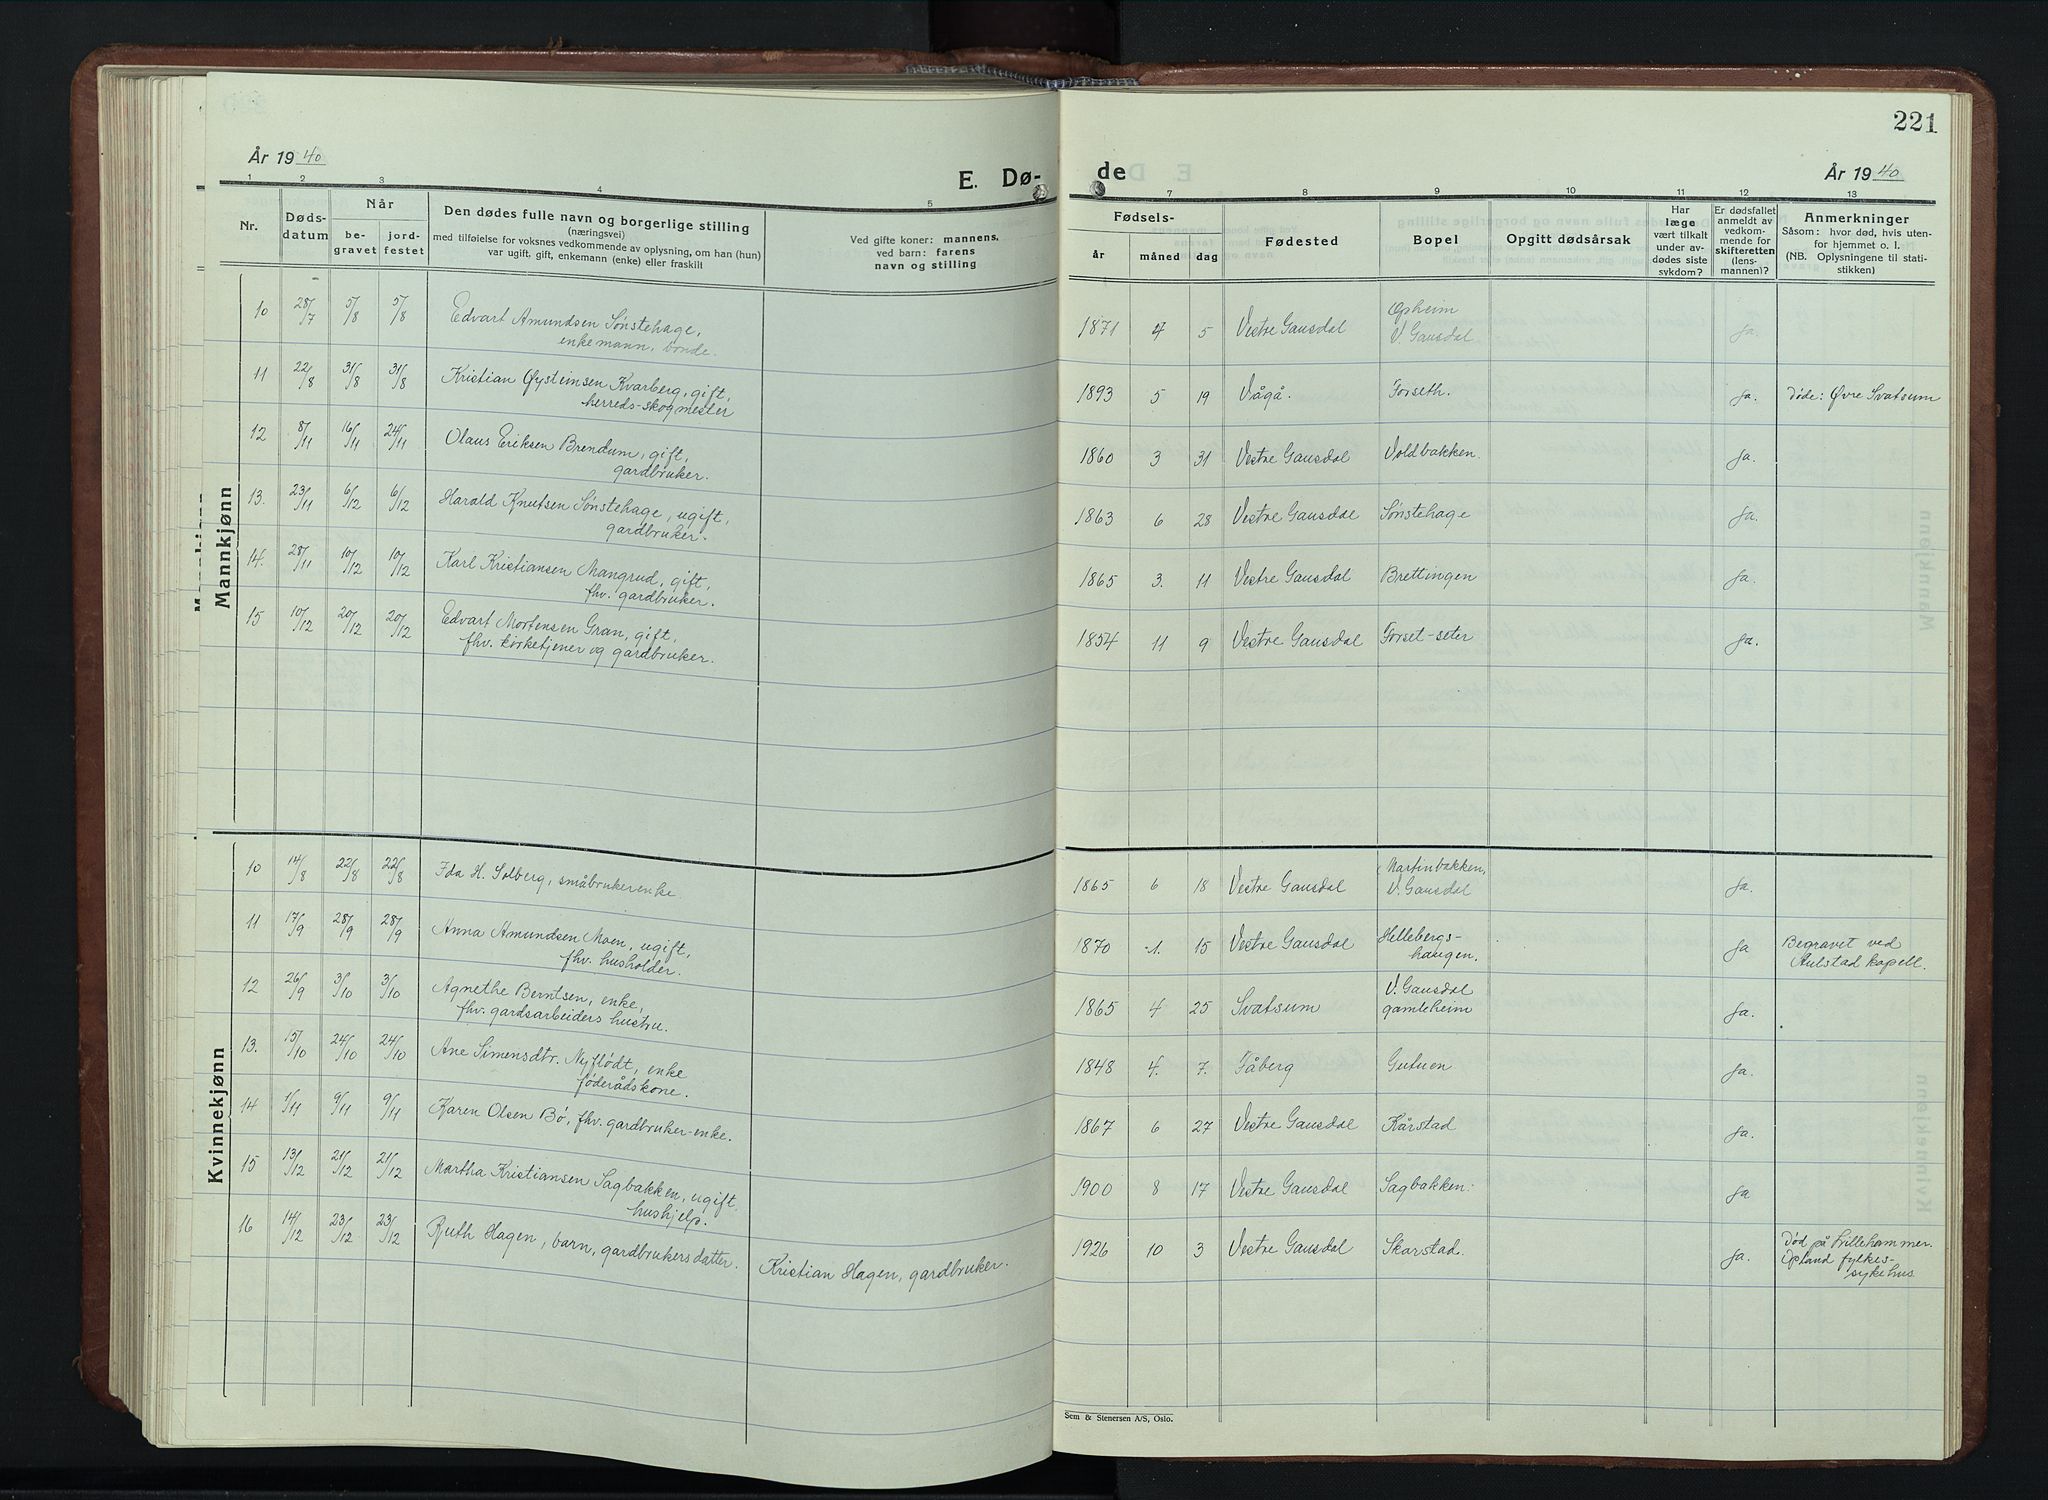 221
År 1940
E. Dø-
de
År 1940
1 2 3 4 5
7 8 9 10 11 12 13
Nr.
Døds-
datum
Når
be-
gravet
jord-
festet
Den dødes fulle navn og borgerlige stilling
(næringsvei)
med tilføielse for voksnes vedkommende av oplysning, om han (hun)
var ugift, gift, enkemann (enke) eller fraskilt
Ved gifte koner: mannens,
ved barn: farens
navn og stilling
Fødsels-
år måned dag
Fødested
Bopel
Opgitt dødsårsak
Har
læge
vært tilkalt
under av-
dødes siste
sykdom?
Er dødsfallet
anmeldt av
vedkom-
mende for
skifteretten
(lens-
mannen)?
Anmerkninger
Såsom: hvor død, hvis uten-
for hjemmet o. l.
(NB. Oplysningene til stati-
stikken)
Mannkjønn
10 28/7 5/8 5/8 Edvart Amundsen Sønstehage,
enkemann, bonde.
1871 4 5 Vestre Gausdal Opheim
V. Gausdal ja.
11 22/8 31/8 31/8 Kristian Øysteinsen Kvarberg, gift,
herreds-skogmester
1893 5 19 Vågå. Forseth. ja. Døde: Øvre Svatsum
12 8/11 16/11 24/11 Olaus Eriksen Brendum, gift,
gardbruker.
1860 3 31 Vestre Gausdal Voldbakken. ja.
13. 23/11 6/12 6/12 Harald Knutsen Sønstehage, ugift,
gardbruker.
1863 6 28 Vestre Gausdal Sønstehage ja.
14. 28/11 10/12 10/12 Karl Kristiansen Mangrud, gift,
fhv. gardbruker.
1865 3. 11 Vestre Gausdal Brettingen ja.
15 10/12 20/12 20/12 Edvart Mortensen Gran, gift,
fhv. kirketjener og gardbruker.
1854 11 9 Vestre Gausdal Forset-seter ja.
Kvinnekjønn
10 14/8 22/8 22/8 Ida H. Solberg, småbrukerenke
1865 6 18 Vestre Gausdal Martinbakken,
V. Gausdal ja.
11 17/9 28/9 28/9 Anna Amundsen Moen, ugift,
fhv. husholder.
1870 1. 15 Vestre Gausdal Hellebergs-
haugen. ja Begravet ved
Aulstad kapell.
12 26/9 3/10 3/10 Agnethe Berntsen, enke,
fhv. gardsarbeiders hustru.
1865 4 25 Svatsum V. Gausdal
gamleheim ja.
13. 15/10 24/10 24/10 Ane Simensdtr. Nyflødt, enke
føderådskone.
1848 4. 7. Fåberg Gutuen ja.
14 1/11 9/11 9/11 Karen Olsen Bø, fhv. gardbruker-enke.
1867 6 27 Vestre Gausdal Kårstad ja.
15 13/12 21/12 21/12 Martha Kristiansen Sagbakken, ugift.
hushjelp.
1900 8 17 Vestre Gausdal Sagbakken. ja
16 14/12 23/12 23/12 Ruth Hagen, barn, gardbrukers datter. Kristian Hagen, gardbruker.
1926 10 3 Vestre Gausdal Skarstad. ja. Død på Lillehammer.
Opland fylkes-
sykehus
Sem & Stenersen A/S, Oslo.